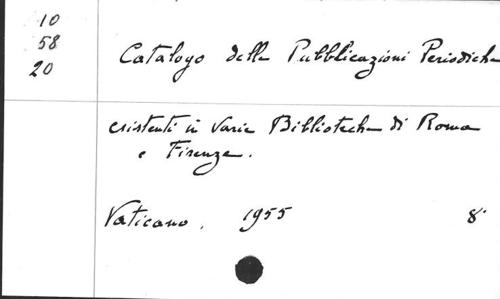 10
58
20
Catalogo delle Pubblicazioni Periodiche
esistenti in varie Biblioteche di Roma
e Firenze.
Vaticano. 1955 8°